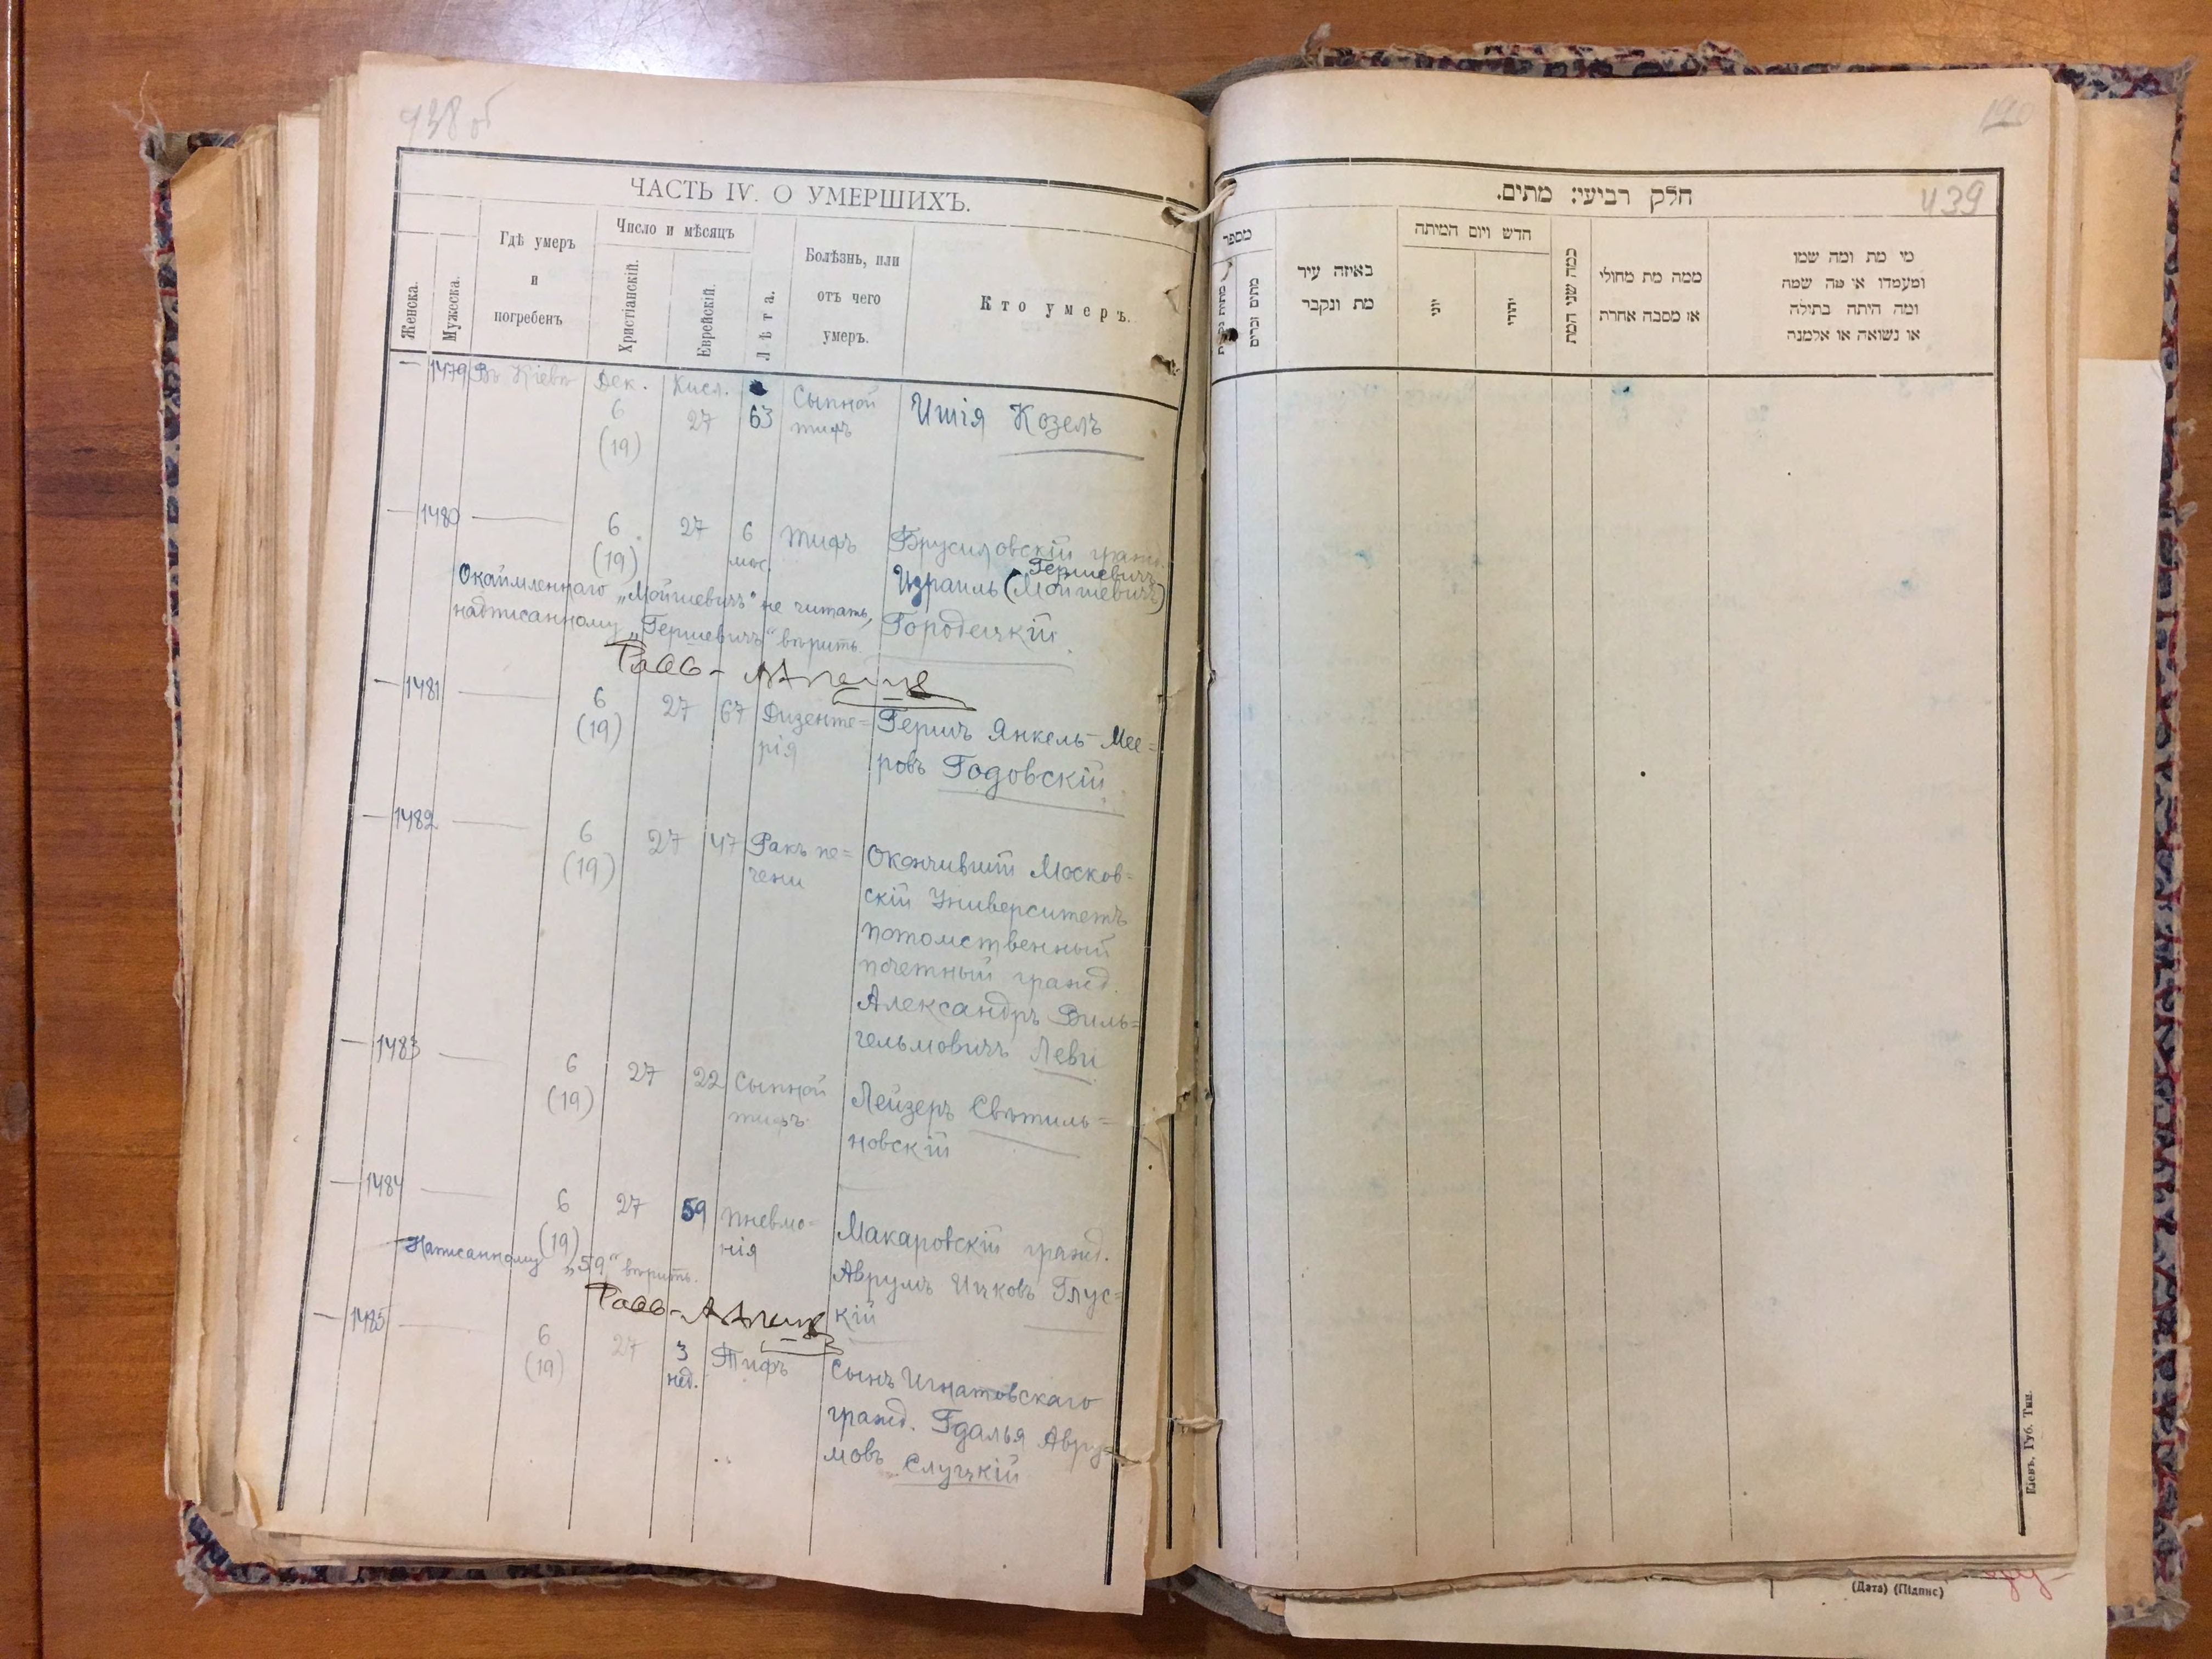 438 об
ЧАСТЬ IV. О УМЕРШИХЪ.
Женска.
Мужеска.
Гдѣ умеръ
и
погребенъ
Число и мѣсяцъ
Христіанскій.
Еврейскій.
Лѣта.
Болѣзнь, или
отъ чего
умеръ.
Кто умеръ.
— 1479 Въ Кіевѣ Дек. Кисл. Сыпной Ишія Козелъ
6 27 63 тифъ
(19)
— 1480 — 6 27 6 Тифъ Брусиловскій гражд.
(19) мѣс. Гершевичъ
Израиль (Мойшевичъ)
Окаймленнаго „Мойшевичъ“ не читать, Городецкій.
надписанному „Гершевичъ“ вѣрить.
Рабб-
— 1481 — 6 27 67 Дизенте= Гершъ Янкель-Мее=
(19) рія ровъ Годовскій
— 1482 — 6 27 47 Ракъ пе= Окончившій Москов=
(19) чени скій Университетъ
потомственный
почетный гражд.
Александръ Виль=
гельмовичъ Леви
— 1483 — 6 27 22 Сыпной Лейзеръ Свѣтиль=
(19) тифъ новскій
— 1484 — 6 27 59 Пневмо= Макаровскій гражд.
(19) нія Аврумъ Ицковъ Глус=
кій
Написанному „59“ вѣрить.
Рабб-
— 1485 — 6 27 3 Тифъ Сынъ Игнатовскаго
(19) нед. гражд. Гдалья Авру=
мовъ Слуцкій
439
חלק רביעי: מתים.
מספר
מתים זכרים
באיזה עיר
מת ונקבר
חדש ויום המיתה
יוני
יהודי
כמה שני המת
ממה מת מחולי
או מסבה אחרת
מי מת ומה שמו
ומעמדו או מה שמה
ומה היתה בתולה
או נשואה או אלמנה
Кіевъ, Губ. Тип.
(Дата) (Підпис)